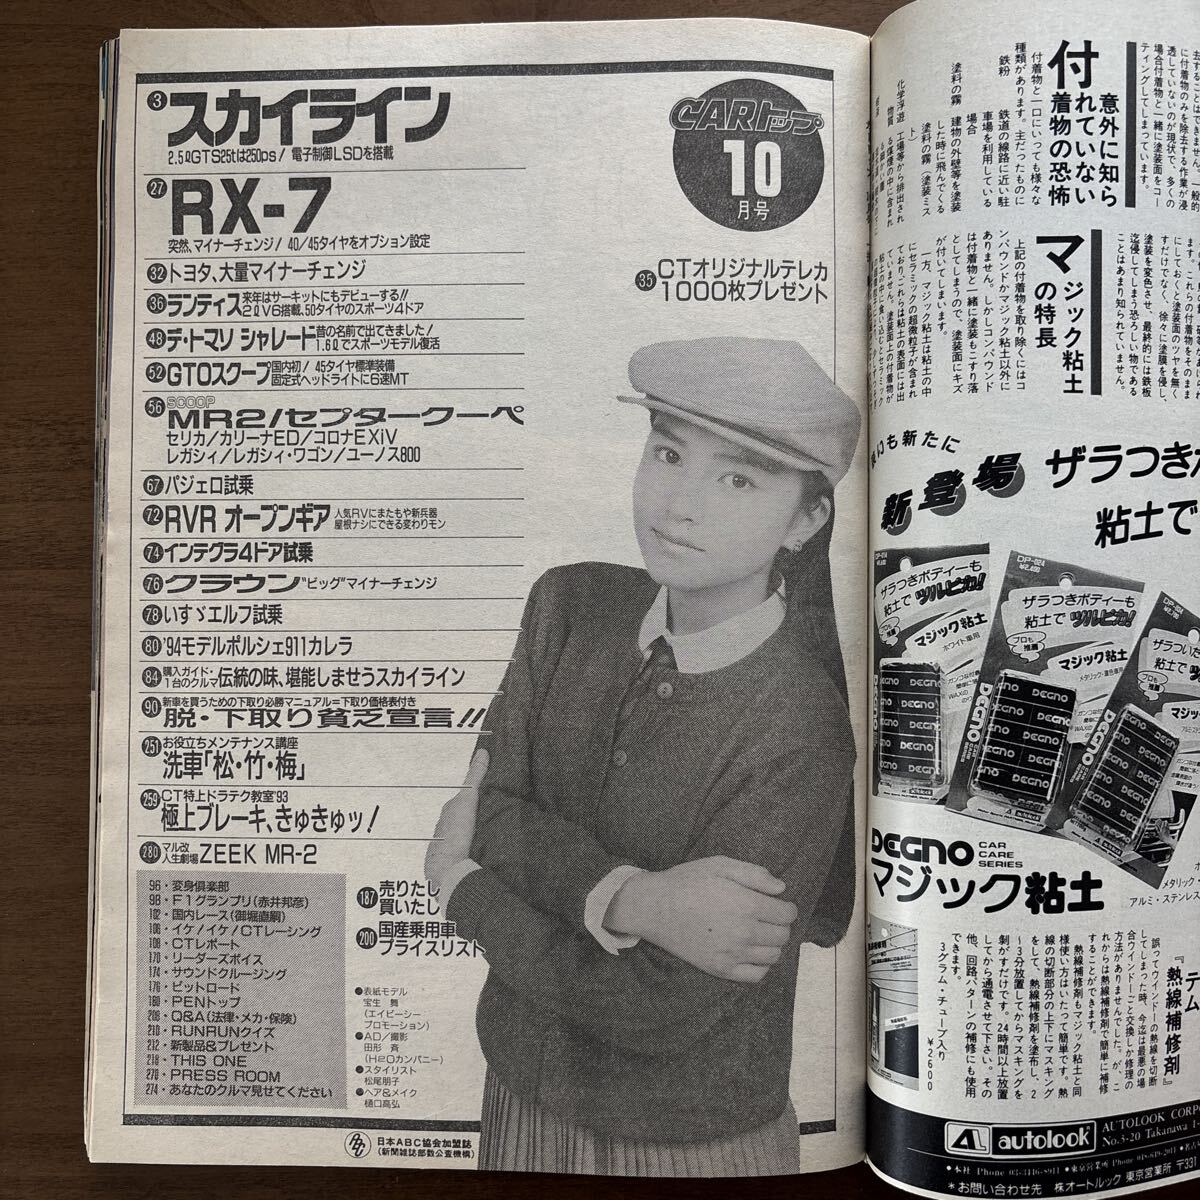 CARトップ
10
月号
3 スカイライン
2.5ℓGTS25tは250ps! 電子制御LSDを搭載
27 RX-7
突然、マイナーチェンジ! 40/45タイヤをオプション設定
32 トヨタ、大量マイナーチェンジ
36 ランティス 来年はサーキットにもデビューする!!
2ℓV6搭載、50タイヤのスポーツ4ドア
48 デ・トマソ シャレード 昔の名前で出てきました!
1.6ℓでスポーツモデル復活
52 GTOスクープ 国内初! 45タイヤ標準装備
固定式ヘッドライトに6速MT
56 SCOOP
MR2/セプタークーペ
セリカ/カリーナED/コロナEXiV
レガシィ/レガシィ・ワゴン/ユーノス800
67 パジェロ試乗
72 RVR オープンギア 人気RVにまたもや新兵器
屋根ナシにできる変わりモン
74 インテグラ4ドア試乗
76 クラウン "ビッグ"マイナーチェンジ
78 いすゞエルフ試乗
80 '94モデルポルシェ911カレラ
84 購入ガイド・
1台のクルマ 伝統の味、堪能しませうスカイライン
90 新車を買うための下取り必勝マニュアル=下取り価格表付き
脱・下取り貧乏宣言!!
251 お役立ちメンテナンス講座
洗車「松・竹・梅」
259 CT特上ドラテク教室'93
極上ブレーキ、きゅきゅッ!
280 マル改
人生劇場 ZEEK MR-2
35 CTオリジナルテレカ
1000枚プレゼント
96・変身倶楽部
98・F1グランプリ(赤井邦彦)
102・国内レース(御堀直嗣)
106・イケ!イケ!CTレーシング
108・CTレポート
170・リーダーズボイス
174・サウンドクルージング
176・ピットロード
180・PENトップ
208・Q&A(法律・メカ・保険)
210・RUNRUNクイズ
212・新製品&プレゼント
218・THIS ONE
270・PRESS ROOM
274・あなたのクルマ見せてください
187 売りたし
買いたし
200 国産乗用車
プライスリスト
●表紙モデル
宝生 舞
(エイビーシー
プロモーション)
●AD/撮影
田形 斉
(H2Oカンパニー)
●スタイリスト
松尾朋子
●ヘア&メイク
樋口高弘
日本ABC協会加盟誌
(新聞雑誌部数公査機構)
意外に知ら
付れていない
着物の恐怖
付着物と一口にいっても様々な
種類があります。主だったものに
マジック粘土
の特長
上記の付着物を取り除くにはコ
ンパウンドかマジック粘土以外に
ありません。しかしコンパウンド
は付着物と一緒に塗装もこすり落
としてしまうので、塗装面にキズ
が付いてしまいます。
一方、マジック粘土は粘土の中
にセラミックの超微粒子が含まれ
ており、これらは粘土の表面には出
ていません。塗装面上の付着物が
も新たに
新登場
ザラつき
粘土で
DP-024
¥2,400
ザラつきボディーも
粘土でツルピカ!
プロも
推薦
マジック粘土
ホワイト車用
ザラつきボディーも
粘土でツルピカ!
プロも
推薦
マジック粘土
DEGNO
DEGNO CAR
CARE
SERIES
マジック粘土
アルミ・ステンレス
『熱線補修剤』
誤ってウインドーの熱線を切断
してしまった時、今迄は最悪の場
合ウインドーごと交換しか修理の
方法がありませんでした。が、こ
れからは熱線補修剤で簡単に補修
することができます。
熱線補修剤もマジック粘土と同
様使い方はいたって簡単です。熱
線の切断部分の上下にマスキング
をして、熱線補修剤を塗布し、2
〜3分放置してからマスキングを
剥がすだけです。24時間以上放置
してから通電させて下さい。その
他、回路パターンの補修にも使用
できます。
3グラム・チューブ入り
¥2600
autolook
AUTOLOOK CORPO
No.3-20 Takanawa 1-
●本社 Phone 03-3446-8911 ●東京営業所 Phone 048-649-2011
*お問い合わせ先 株オートルック 東京営業所 〒331